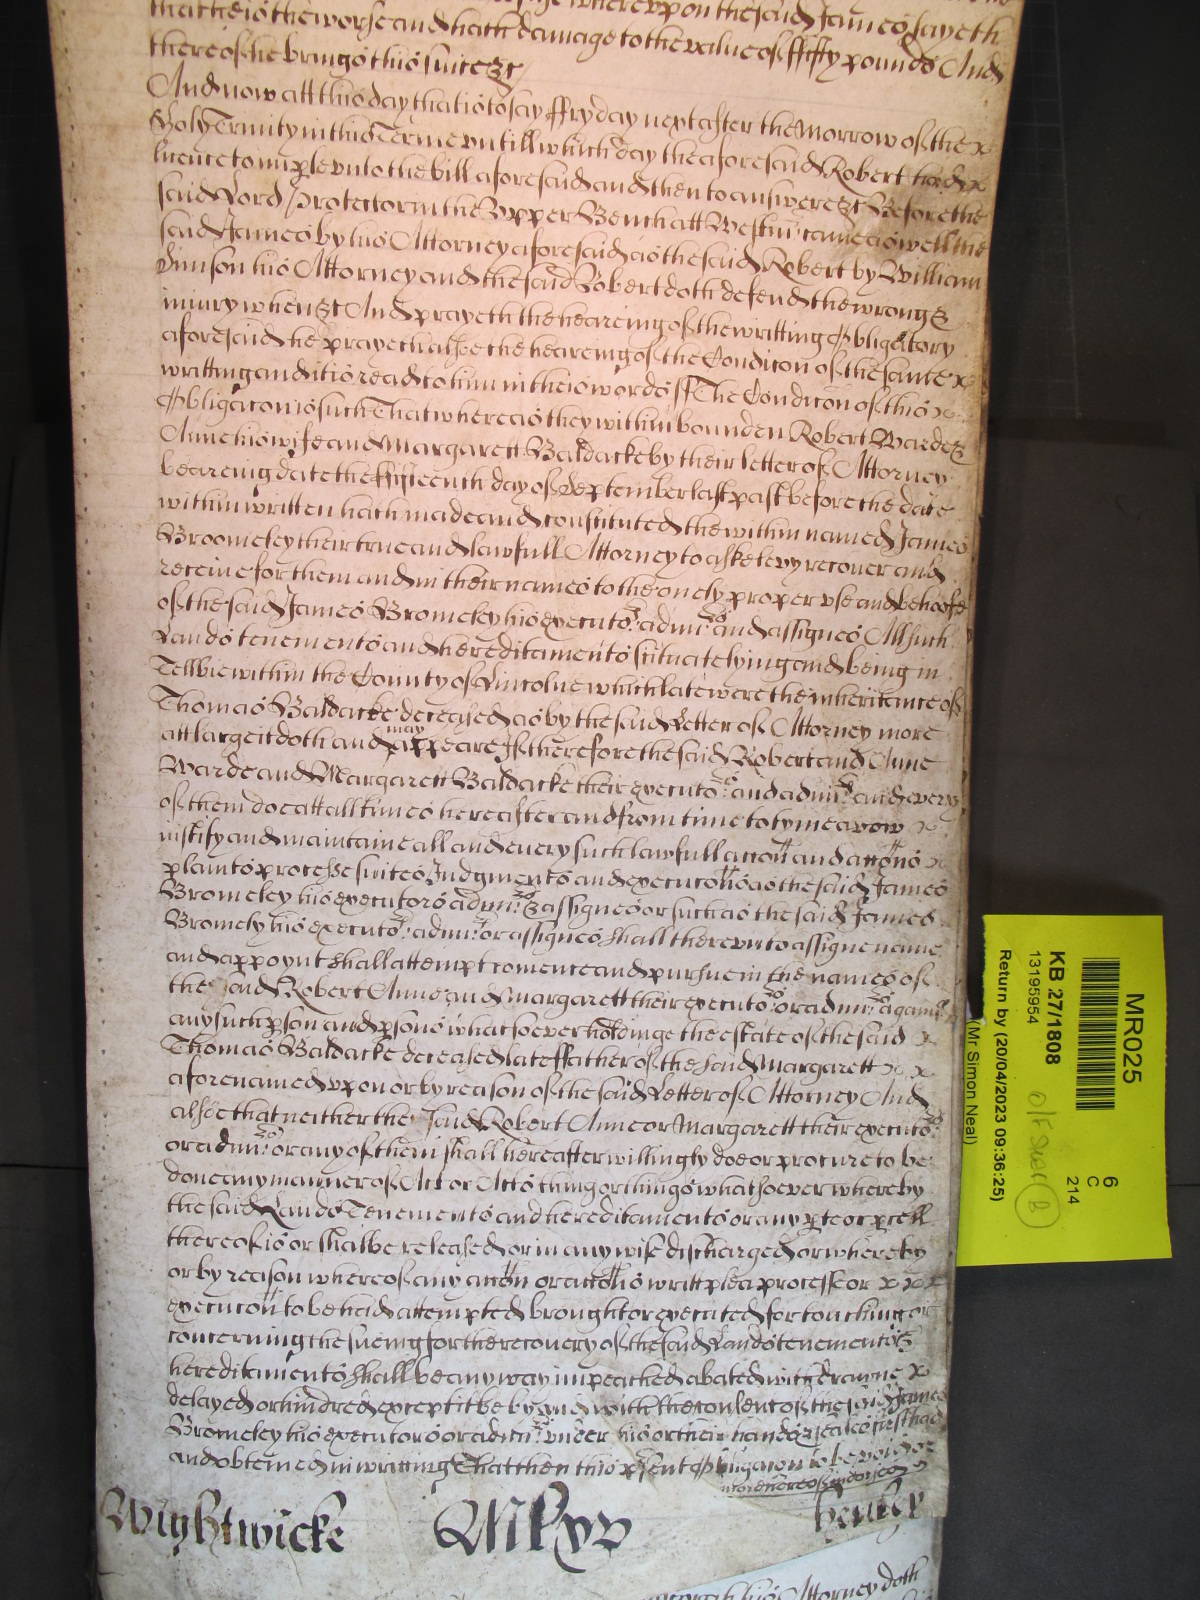 whereupon the said James sayeth
that he is the worse and hath damage to the value of ffifty pounds And
thereof he brings this suite &c
And now att this day that is to say ffryday next after the Morrow of the
Holy Trinity in this Terme untill which day the aforesaid Robert had
licence to imple unto the bill aforesaid and then to answere &c Before the
said Lord Protector in the Upper Bench att Westm came aswell the
said James by his Attorney aforesaid as the said Robert by William
his Attorney and the said Robert doth defend the wrong &
iniury when &c And prayeth the heareing of the writting Obligatory
aforesaid he prayeth alsoe the heareing of the Condicon of the same
writting and it is read to him in theis words ss The Condicon of this
Obligacon is such That whereas they within bounden Robert Warde &
Anne his wife and Margarett Baldacke by their letter of Attorney
beareing date the ffifteenth day of September last past before the date
within written hath made and constituted the within named James
Broomeley their true and lawfull Attorney to aske levy recover and
receive for them and in their names to the onely proper use and behoofe
of the said James Bromeley his executors admrs and assignes All such
Lands tenements and hereditaments scituate lying and being in
Telbie within the County of Lincolne which late were the inheritance of
Thomas Baldacke deceased as by the said Letter of Attorney more
att large it doth and may appeare If therefore the said Robert and Anne
Warde and Margarett Baldacke their executors and admrs and every
of them doe att all times hereafter and from time to tyme avow
iustify and maintaine all and every such lawfull accon and accons
plaints processe suites Judgments and executions as the said James
Bromeley his executors admrs & assignes or such as the said James
Bromely his executors admrs or assignes shall thereunto assigne name
and appoynt shall attempt comence and pursue in the names of
the said Robert Anne and Margarett their executors or admrs against
any such pson and psons whatsoever holdinge the estate of the said
Thomas Baldacke deceased late ffather of the said Margarett
aforenamed upon or by reason of the said Letter of Attorney And
alsoe that neither the said Robert Anne or Margarett their executors
or admrs or any of them shall hereafter willingly doe or procure to be
done any manner of Act or Acts thing or things whatsoever whereby
the said Lands Tenements and hereditaments or any pte or pcell
thereof is or shalbe released or in any wise discharged or whereby
or by reason whereof any accon or accons writt plea processe or
execucon to be had attempted brought or executed for touching or
concerning the sueing for the recovery of the said Lands tenements &
hereditaments shall be any way impeached abated withdrawne
delayed or hindred except it be by and with the consent of the said James
Bromeley his executors or admrs under his or their hands & seales first had
and obteined in writting That then this psent Obligacon to be void or
Wightwicke
his Attorney doth
MR025
6
C
214
KB 27/1808
13195954
Return by (20/04/2023 09:36:25)
(Mr Simon Neal)
B